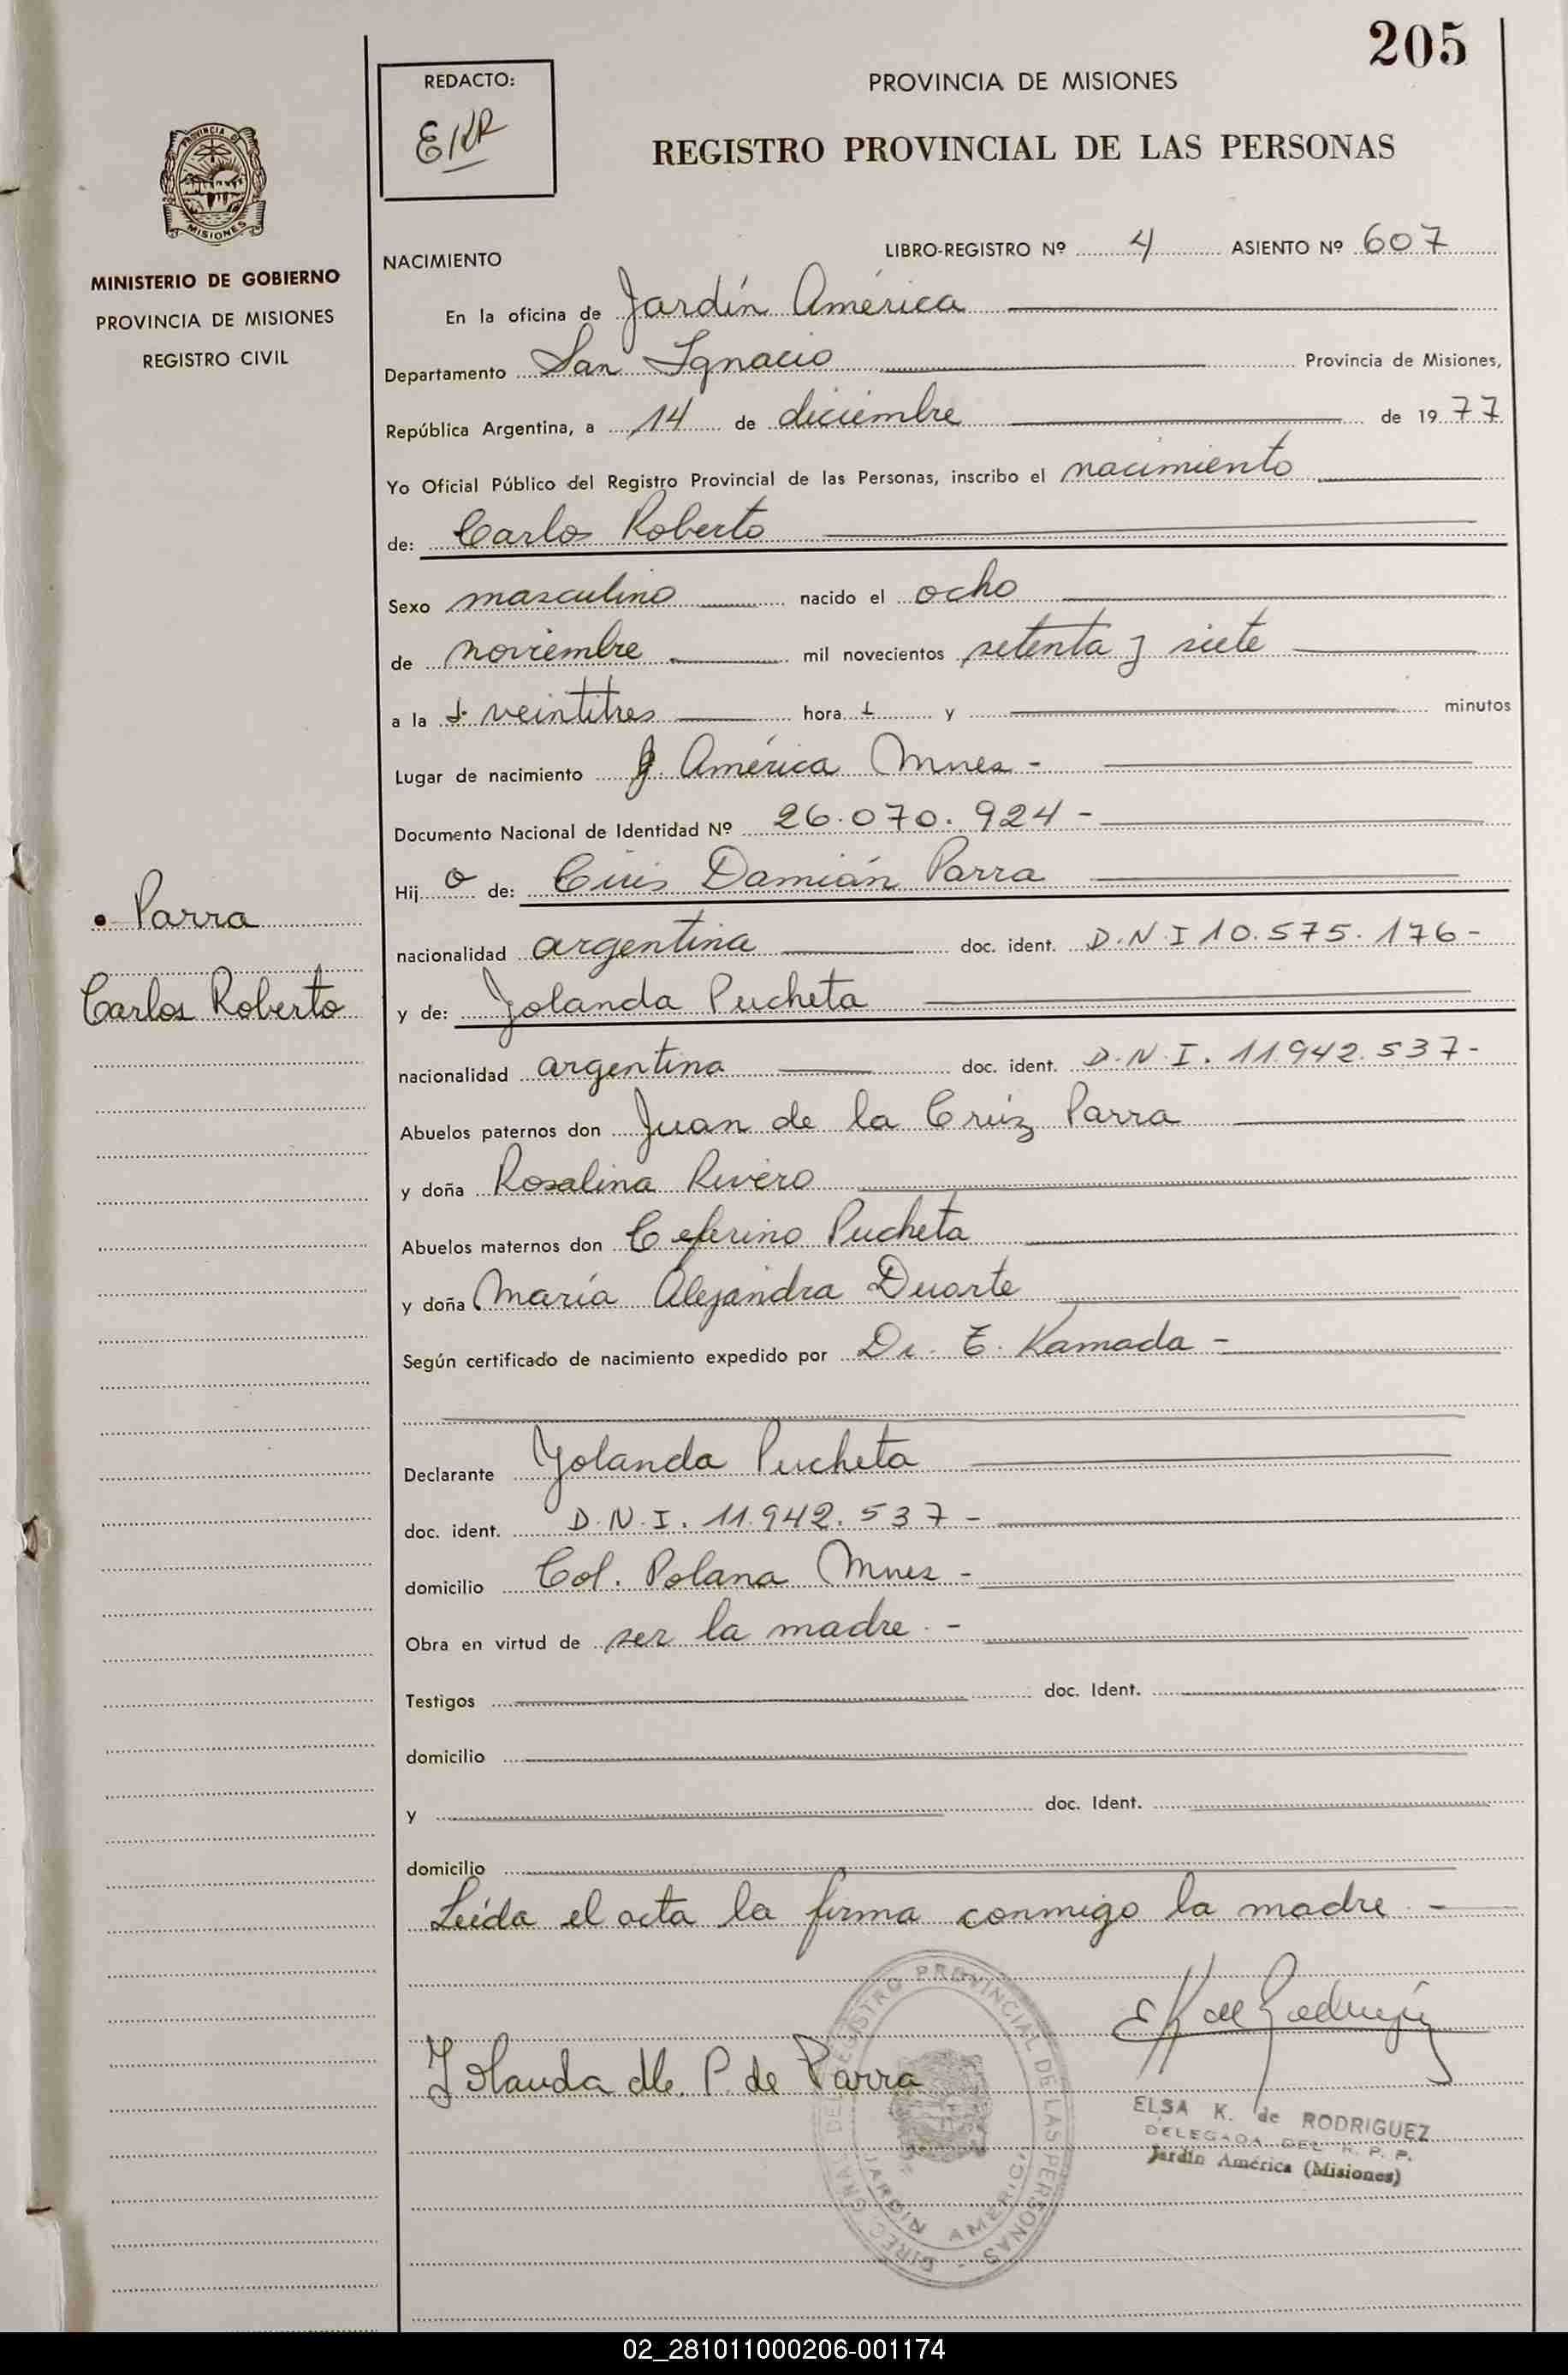 205
REDACTO:
EKR
PROVINCIA DE MISIONES
REGISTRO PROVINCIAL DE LAS PERSONAS
PROVINCIA DE
MISIONES
MINISTERIO DE GOBIERNO
PROVINCIA DE MISIONES
REGISTRO CIVIL
NACIMIENTO
LIBRO-REGISTRO Nº 4 ASIENTO Nº 607
En la oficina de Jardín América
Departamento San Ignacio Provincia de Misiones,
República Argentina, a 14 de diciembre de 1977
Yo Oficial Público del Registro Provincial de las Personas, inscribo el nacimiento
de: Carlos Roberto
Sexo masculino nacido el ocho
de noviembre mil novecientos setenta y siete
a la s veintitres hora s y minutos
Lugar de nacimiento J. América Mnes -
Documento Nacional de Identidad Nº 26.070.924 -
Hijo de: Damián Parra
nacionalidad argentina doc. ident. D.N.I 10.575.176 -
Parra
Carlos Roberto
y de: Yolanda Pucheta
nacionalidad argentina doc. ident. D.N.I. 11.942.537 -
Abuelos paternos don Juan de la Cruz Parra
y doña Rosalina Rivero
Abuelos maternos don Ceferino Pucheta
y doña María Alejandra Duarte
Según certificado de nacimiento expedido por Dr. E. Kamada -
Declarante Yolanda Pucheta
doc. ident. D.N.I. 11.942.537 -
domicilio Col. Polana Mnes -
Obra en virtud de ser la madre. -
Testigos doc. Ident.
domicilio
y doc. Ident.
domicilio
Leída el acta la firma conmigo la madre -
EK de Rodriguez
Yolanda P. de Parra
DIREC. GRAL. DEL REGISTRO PROVINCIAL DE LAS PERSONAS -
JARDIN AMERICA
ELSA K. de RODRIGUEZ
DELEGADA DEL R. P. P.
Jardín América (Misiones)
02_281011000206-001174